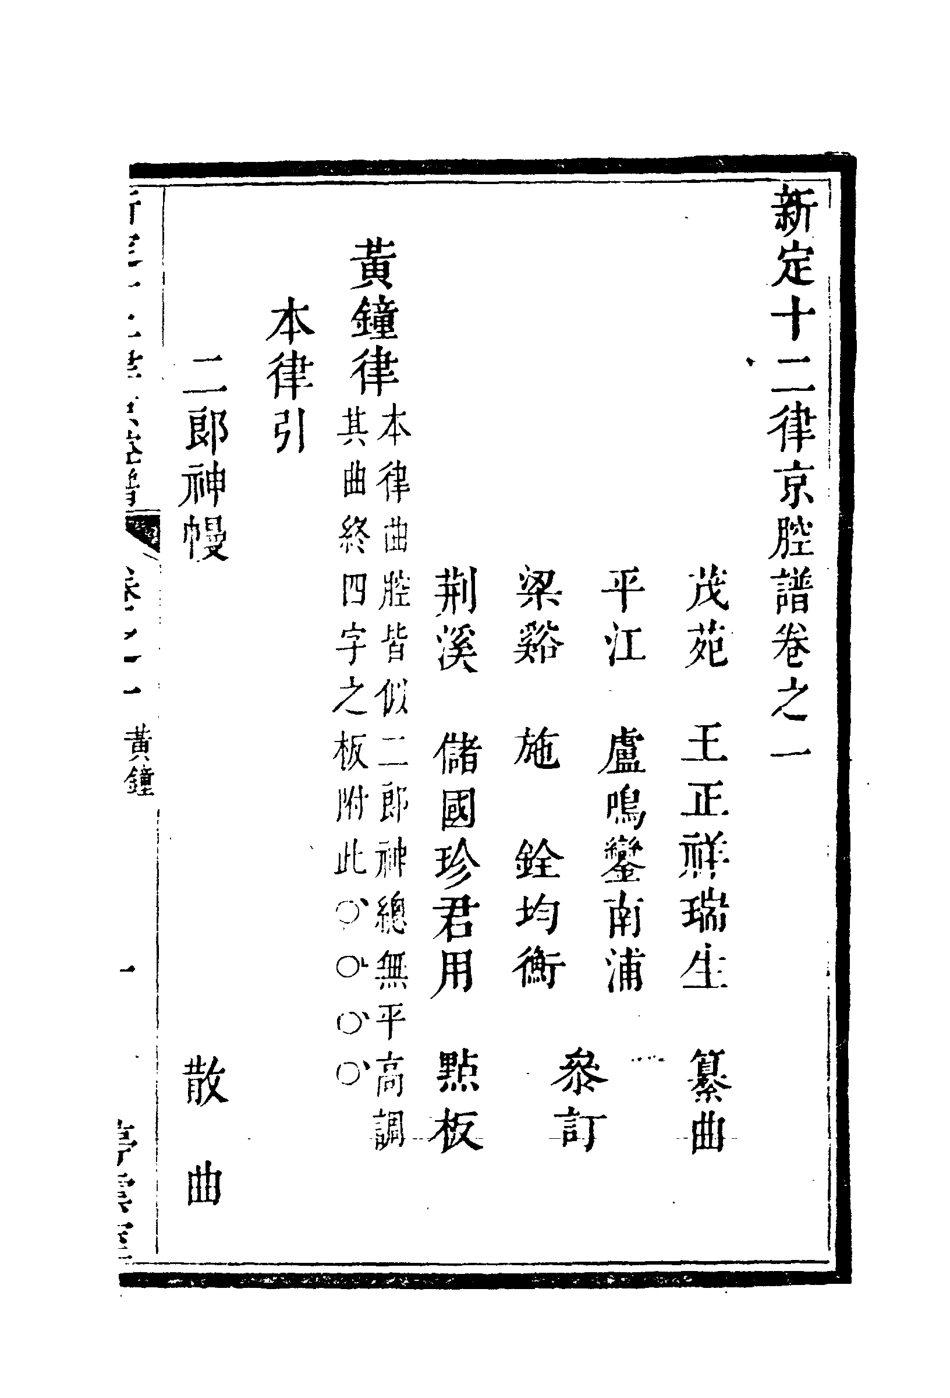 新定十二律京腔譜卷之一
茂苑 王正祥瑞生 纂曲
平江 盧鳴鑾南浦
參訂
梁谿 施 銓均衡
荆溪 儲國珍君用 點板
黃鐘律
本律曲腔皆似二郎神總無平高調
其曲終四字之板附此
本律引
二郎神幔 散曲
新定十二律京腔譜 卷之一 黃鐘 一 停雲室